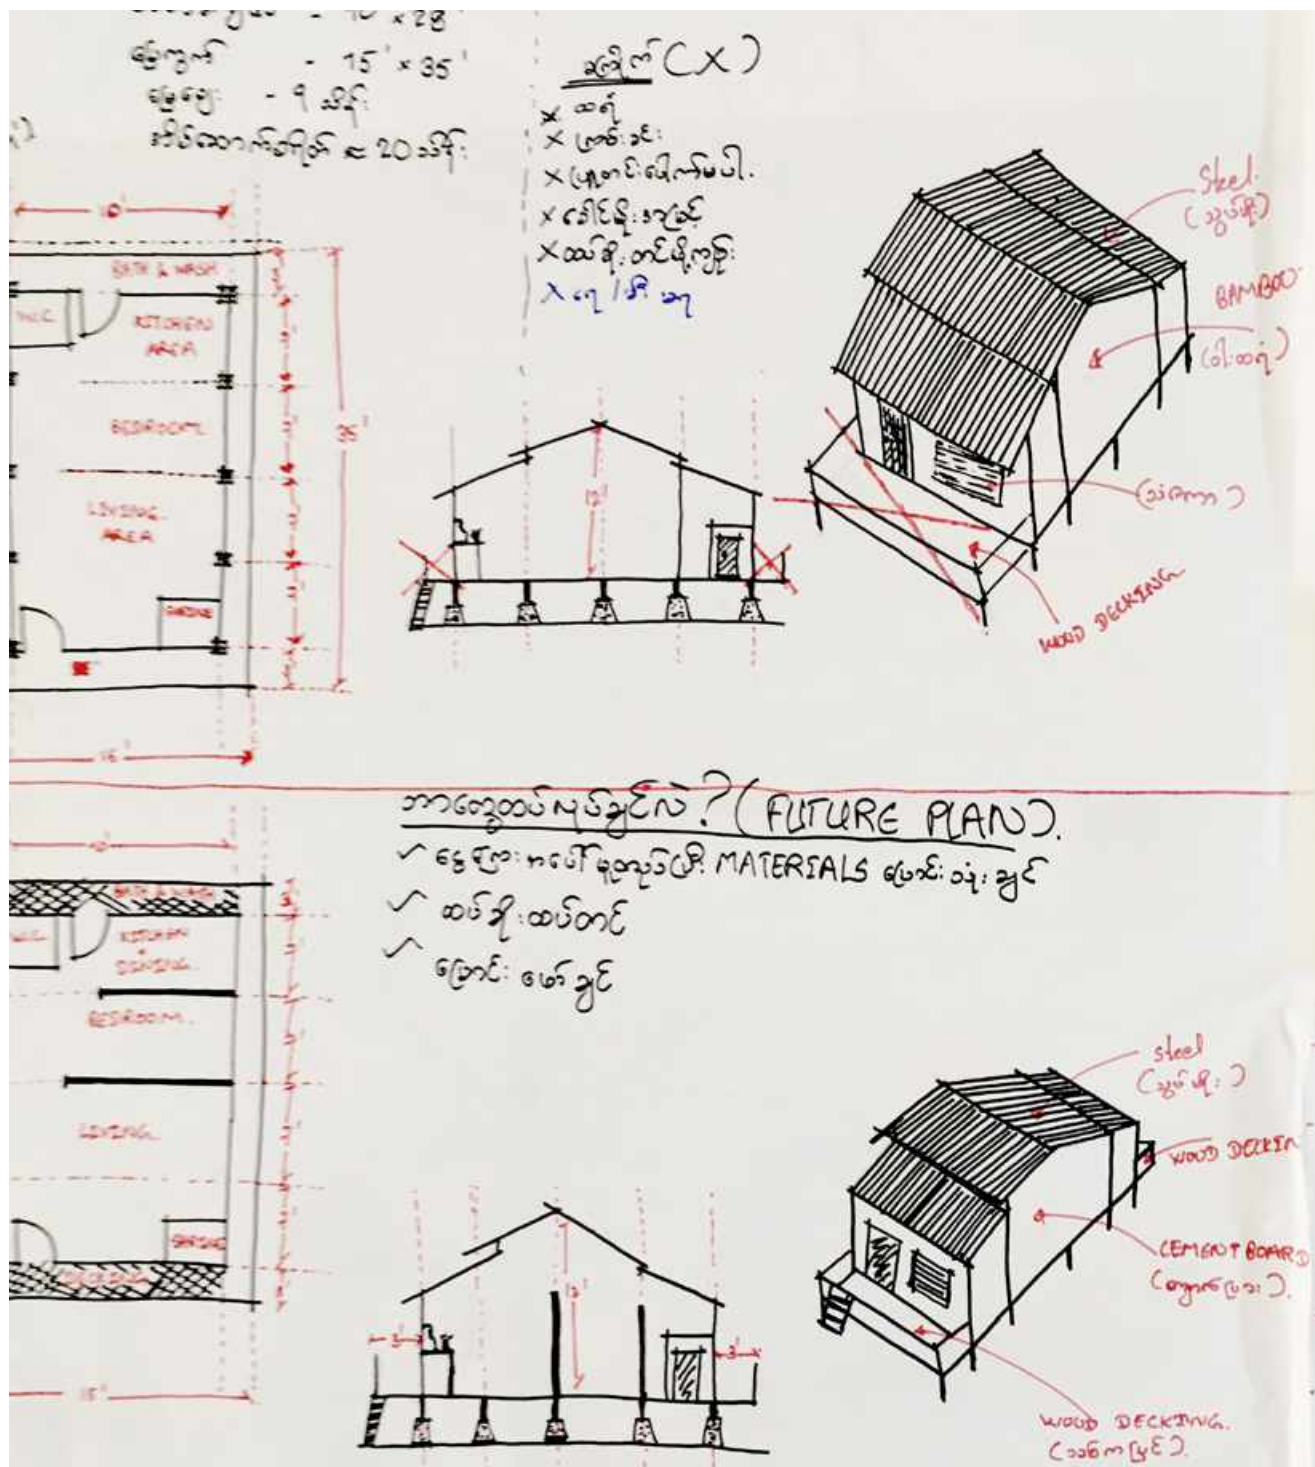 မြေကွက် - 15' × 35'
မြေဈေး - ၅ သိန်း
အိမ်ဆောက်စရိတ် ≈ 20 သိန်း
မကြိုက် (X)
× ထရံ
× ကြမ်းခင်း
× ပြူတင်းပေါက်မပါ.
× ခေါင်မိုးအမြင့်
BATH & WASH
W.C.
KITCHEN
AREA
BEDROOM.
LIVING.
AREA
SHRINE
35'
12'
15'
Steel.
(သွပ်မိုး)
BAMBOO
(ဝါးထရံ)
(သံဇကာ)
WOOD DECKING
ဘာတွေထပ်လုပ်ချင်လဲ? (FUTURE PLAN).
✓ ငွေကြေးအပေါ်မူတည်ပြီး MATERIALS ပြောင်းသုံးချင်
✓ ထပ်ခိုးထပ်တင်
✓ ပြောင်းဖော်ချင်
BATH & WASH
W.C.
KITCHEN
+
DINING.
BEDROOM.
LIVING.
SHRINE
DECKING
15'
3'
12'
3'
steel
(သွပ်မိုး)
WOOD DECKIN
CEMENT BOARD
WOOD DECKING.
(သစ်ကပြင်).